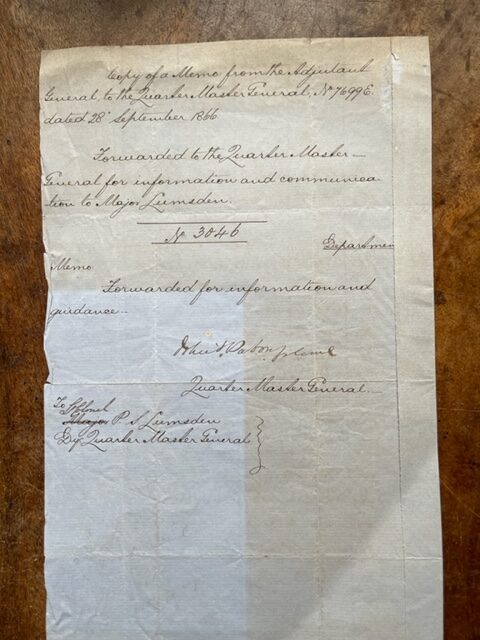 Copy of a Memo from the Adjutant
General, to the Quarter Master General, No 7699 E.
dated 28th September 1866.
Forwarded to the Quarter Master
General for information and communica-
tion to Major Lumsden.
No 3046
Departmen
Memo
Forwarded for information and
guidance..
Colonel
Quarter Master General.
To
Colonel
Major P S Lumsden
Dy Quarter Master General